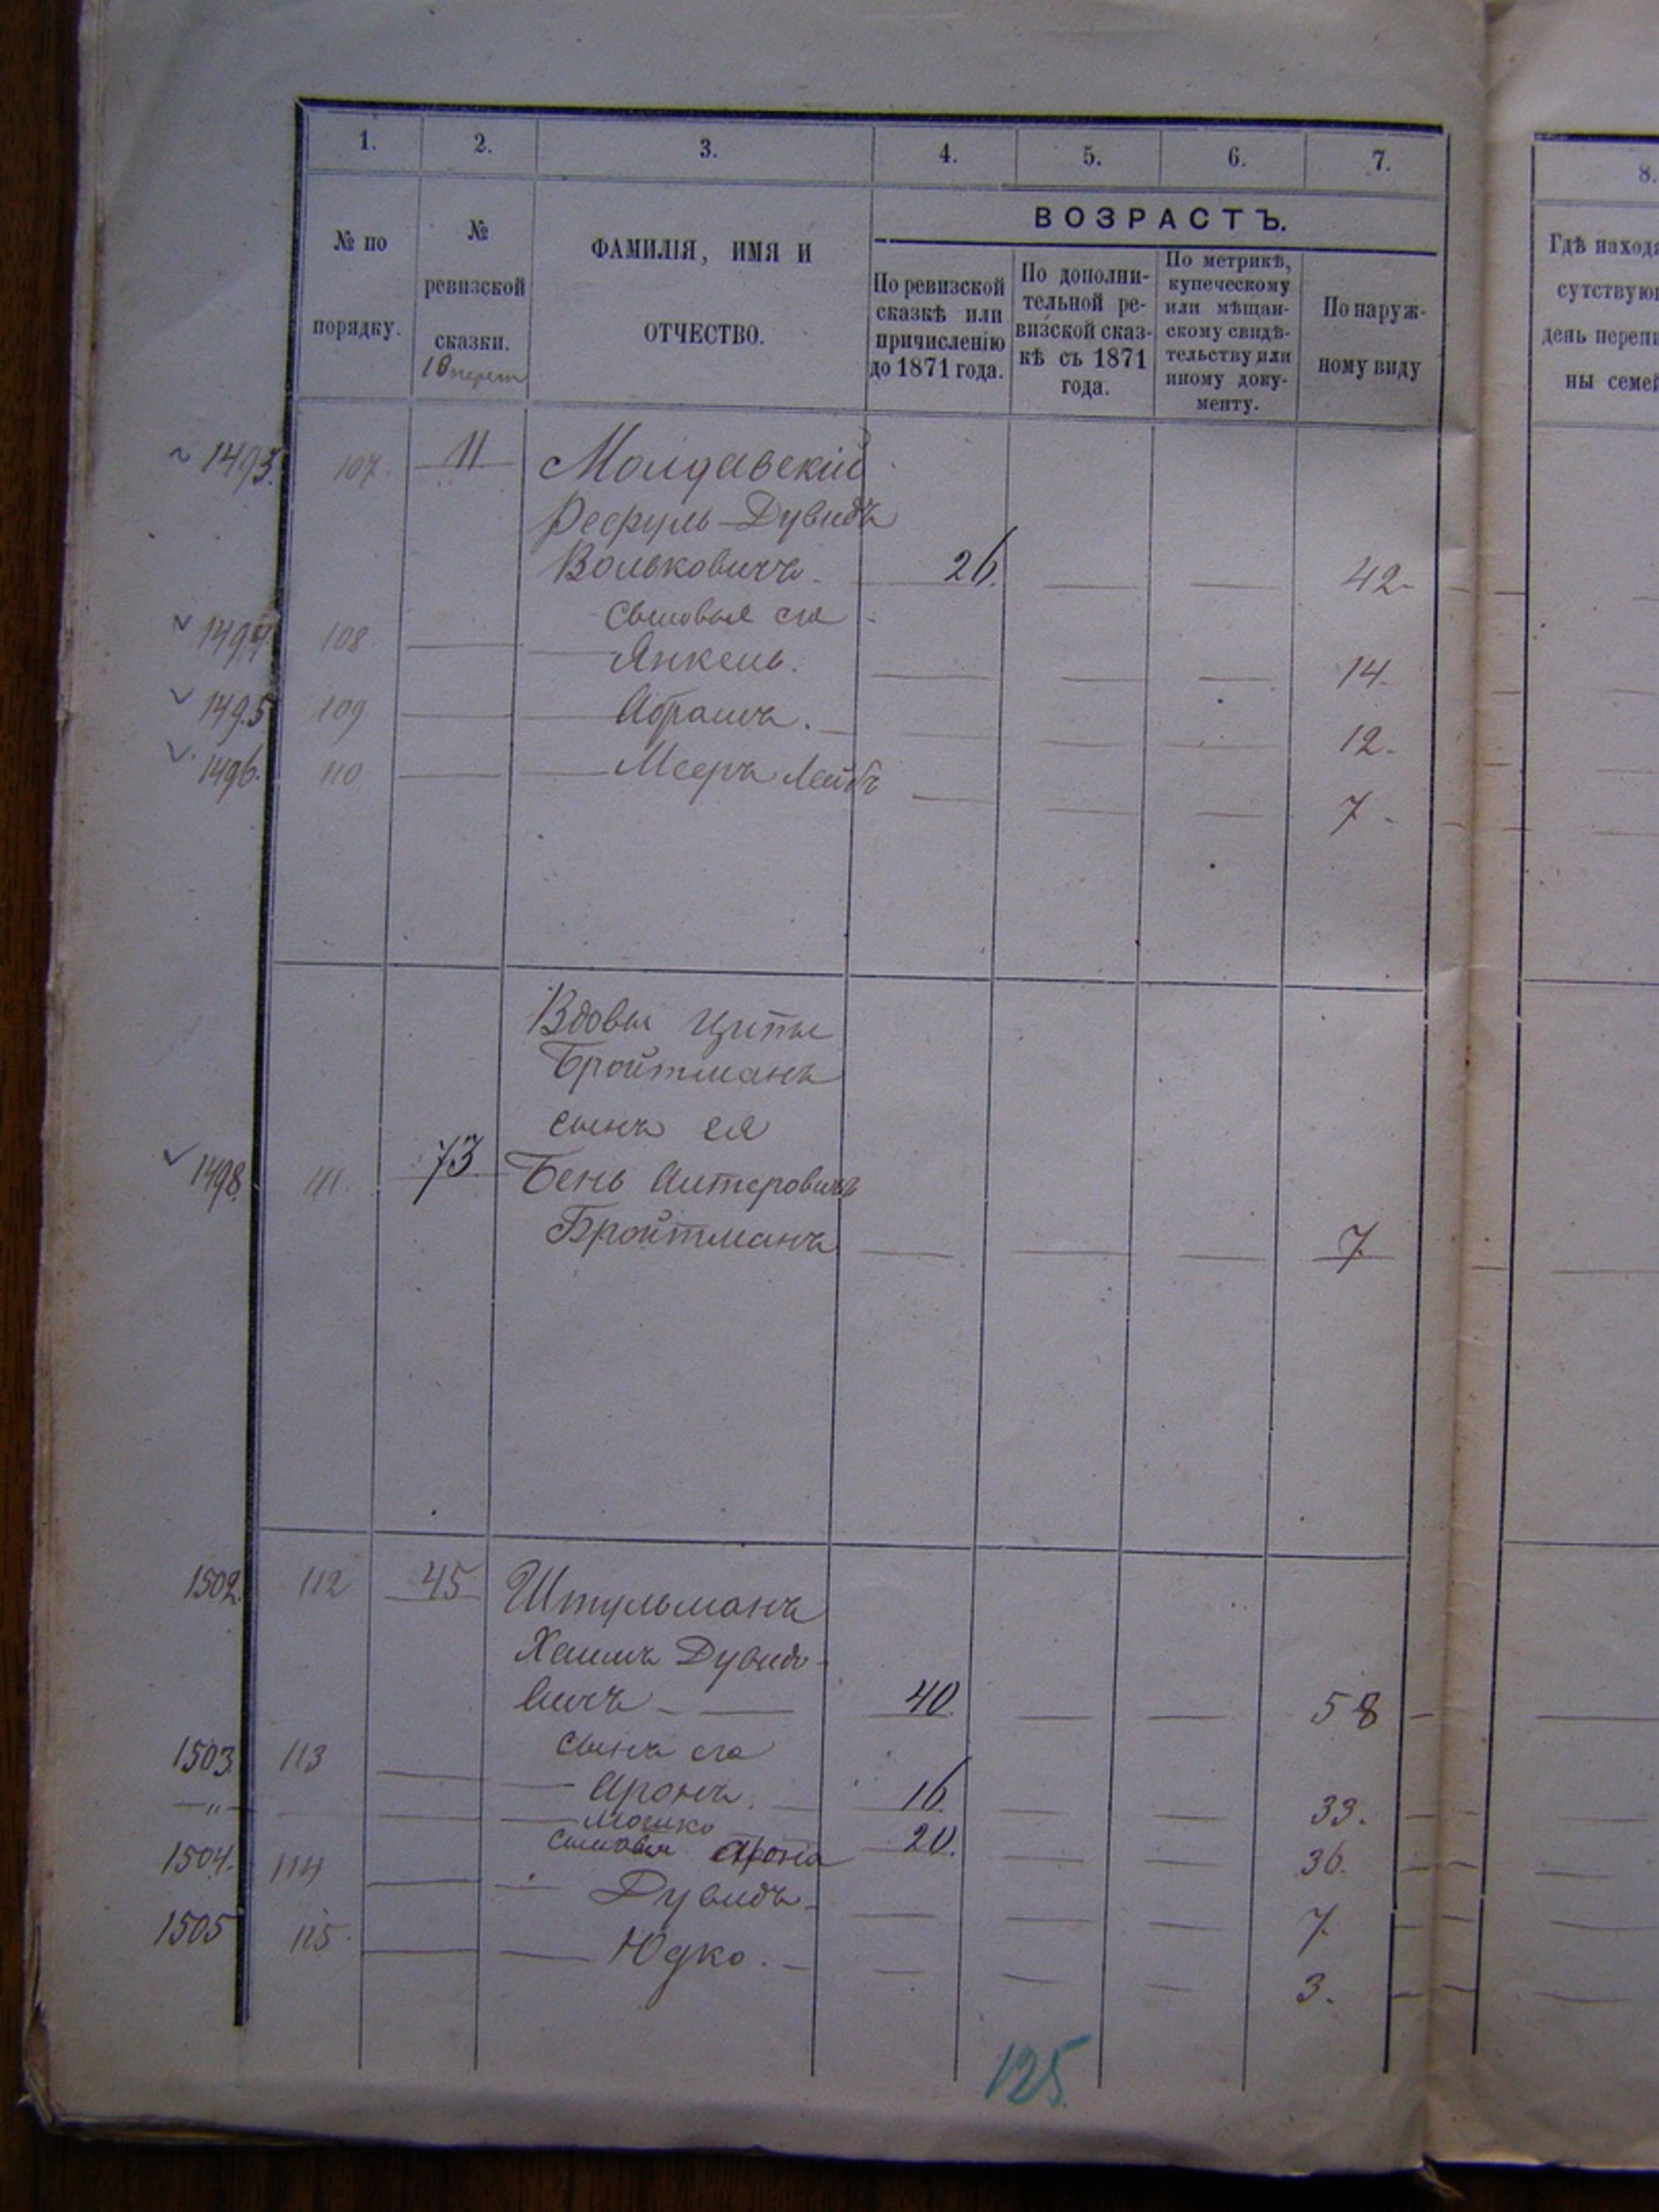 1. 2. 3. 4. 5. 6. 7.
8.
№ по порядку.
№ ревизской сказки.
10 переп
ФАМИЛІЯ, ИМЯ И ОТЧЕСТВО.
ВОЗРАСТЪ.
По ревизской сказкѣ или причисленію до 1871 года.
По дополни-
тельной ре-
визской сказ-
кѣ съ 1871
года.
По метрикѣ,
купеческому
или мѣщан-
скому свидѣ-
тельству или
иному доку-
менту.
По наруж-
ному виду
Гдѣ наход
сутствую
день переп
ны семе
1493. 107. 11 Молдавскій
Рефуль-Дувидъ
Вольковичъ 26. 42
Сыновья его
1494 108. Янкель. 14.
1495 109 Абрамъ. 12.
1496. 110 Мееръ Лейбъ 7
Вдовы Ципы
Бройтманъ
сынъ ея
1498. 111. 73 Бень Антеровичъ
Бройтманъ 7
1502. 112 45 Штульманъ
Хаимъ Дувидо-
вичъ 40. 58
сынъ его
1503. 113 Аронъ. 16 33.
—"— Мошко 20. 36.
Сыновья Арона
1504. 114 Дувидъ 7.
1505 115. Юдко. 3.
125.